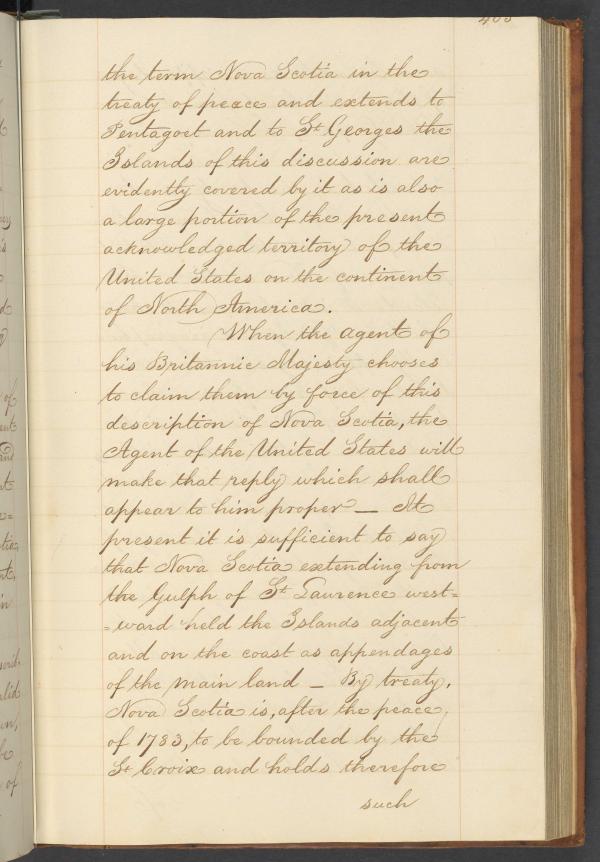 the term Nova Scotia in the
treaty of peace and extends to
Pentagoet and to St Georges the
Islands of this discussion are
evidently covered by it as is also
a large portion of the present
acknowledged territory of the
United States on the continent
of North America.
When the agent of
his Britannic Majesty chooses
to claim them by force of this
description of Nova Scotia, the
Agent of the United States will
make that reply which shall
appear to him proper — At
present it is sufficient to say
that Nova Scotia extending from
the Gulph of St Laurence west=
=ward held the Islands adjacent
and on the coast as appendages
of the main land — By treaty,
Nova Scotia is, after the peace,
of 1783, to be bounded by the
St Croix and holds therefore
such